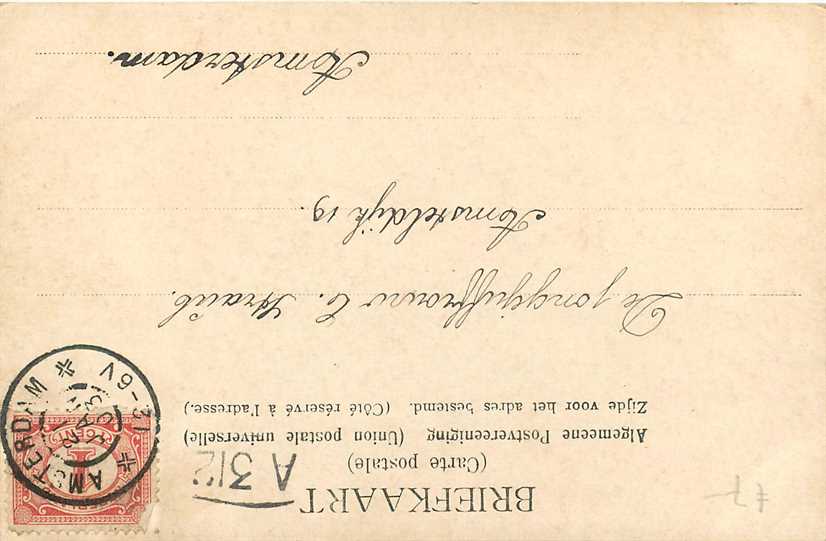 BRIEFKAART
(Carte postale)
Algemeene Postvereeniging (Union postale universelle)
Zijde voor het adres bestemd. (Côté réservé à l'adresse.)
A 312
AMSTERDAM
De jongejuffrouw C. Straub.
Amsteldijk 19.
Amsterdam.